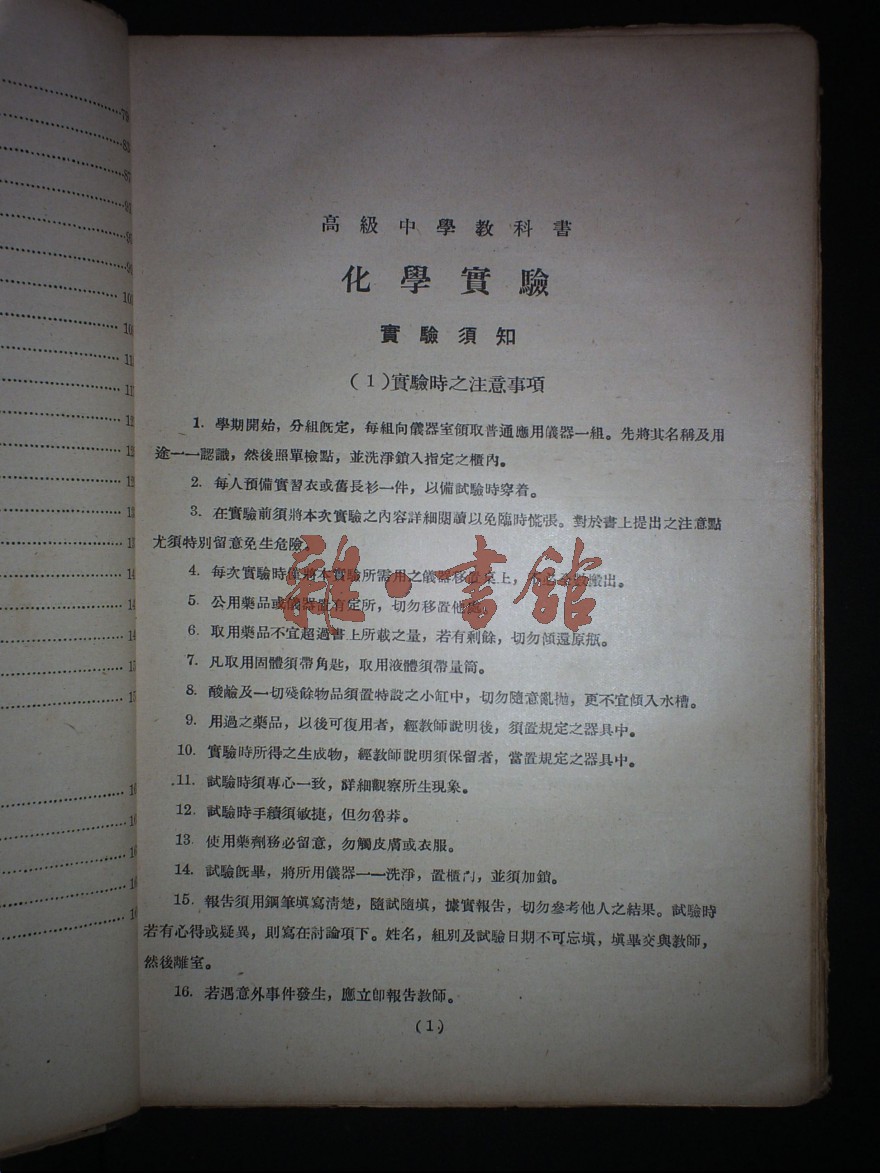 高級中學教科書
化學實驗
實驗須知
(1)實驗時之注意事項
1. 學期開始，分組旣定，每組向儀器室領取普通應用儀器一組。先將其名稱及用
途一一認識，然後照單檢點，並洗淨鎖入指定之櫃內。
2. 每人預備實習衣或舊長衫一件，以備試驗時穿着。
3. 在實驗前須將本次實驗之內容詳細閱讀以免臨時慌張。對於書上提出之注意點
尤須特別留意免生危險。
4. 每次實驗時僅將本實驗所需用之儀器移置桌上，不必全數搬出。
5. 公用藥品或儀器置有定所，切勿移置他處。
6. 取用藥品不宜超過書上所載之量，若有剩餘，切勿傾還原瓶。
7. 凡取用固體須帶角匙，取用液體須帶量筒。
8. 酸鹼及一切殘餘物品須置特設之小缸中，切勿隨意亂拋，更不宜傾入水槽。
9. 用過之藥品，以後可復用者，經敎師說明後，須置規定之器具中。
10. 實驗時所得之生成物，經敎師說明須保留者，當置規定之器具中。
11. 試驗時須專心一致，詳細觀察所生現象。
12. 試驗時手續須敏捷，但勿魯莽。
13. 使用藥劑務必留意，勿觸皮膚或衣服。
14. 試驗旣畢，將所用儀器一一洗淨，置櫃內，並須加鎖。
15. 報告須用鋼筆塡寫淸楚，隨試隨塡，據實報告，切勿參考他人之結果。試驗時
若有心得或疑異，則寫在討論項下。姓名，組別及試驗日期不可忘塡，塡畢交與敎師，
然後離室。
16. 若遇意外事件發生，應立卽報告敎師。
(1)
雜·書館
79
83
87